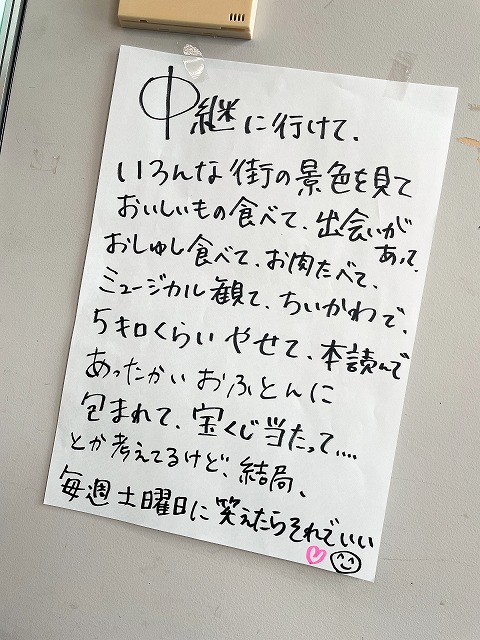 中継に行けて、
いろんな街の景色を見て
おいしいもの食べて、出会いがあって、
おしゅし食べて、お肉たべて、
ミュージカル観て、ちいかわで、
5キロくらいやせて、本読んで
あったかいおふとんに
包まれて、宝くじ当たって....
とか考えてるけど、結局、
毎週土曜日に笑えたらそれでいい